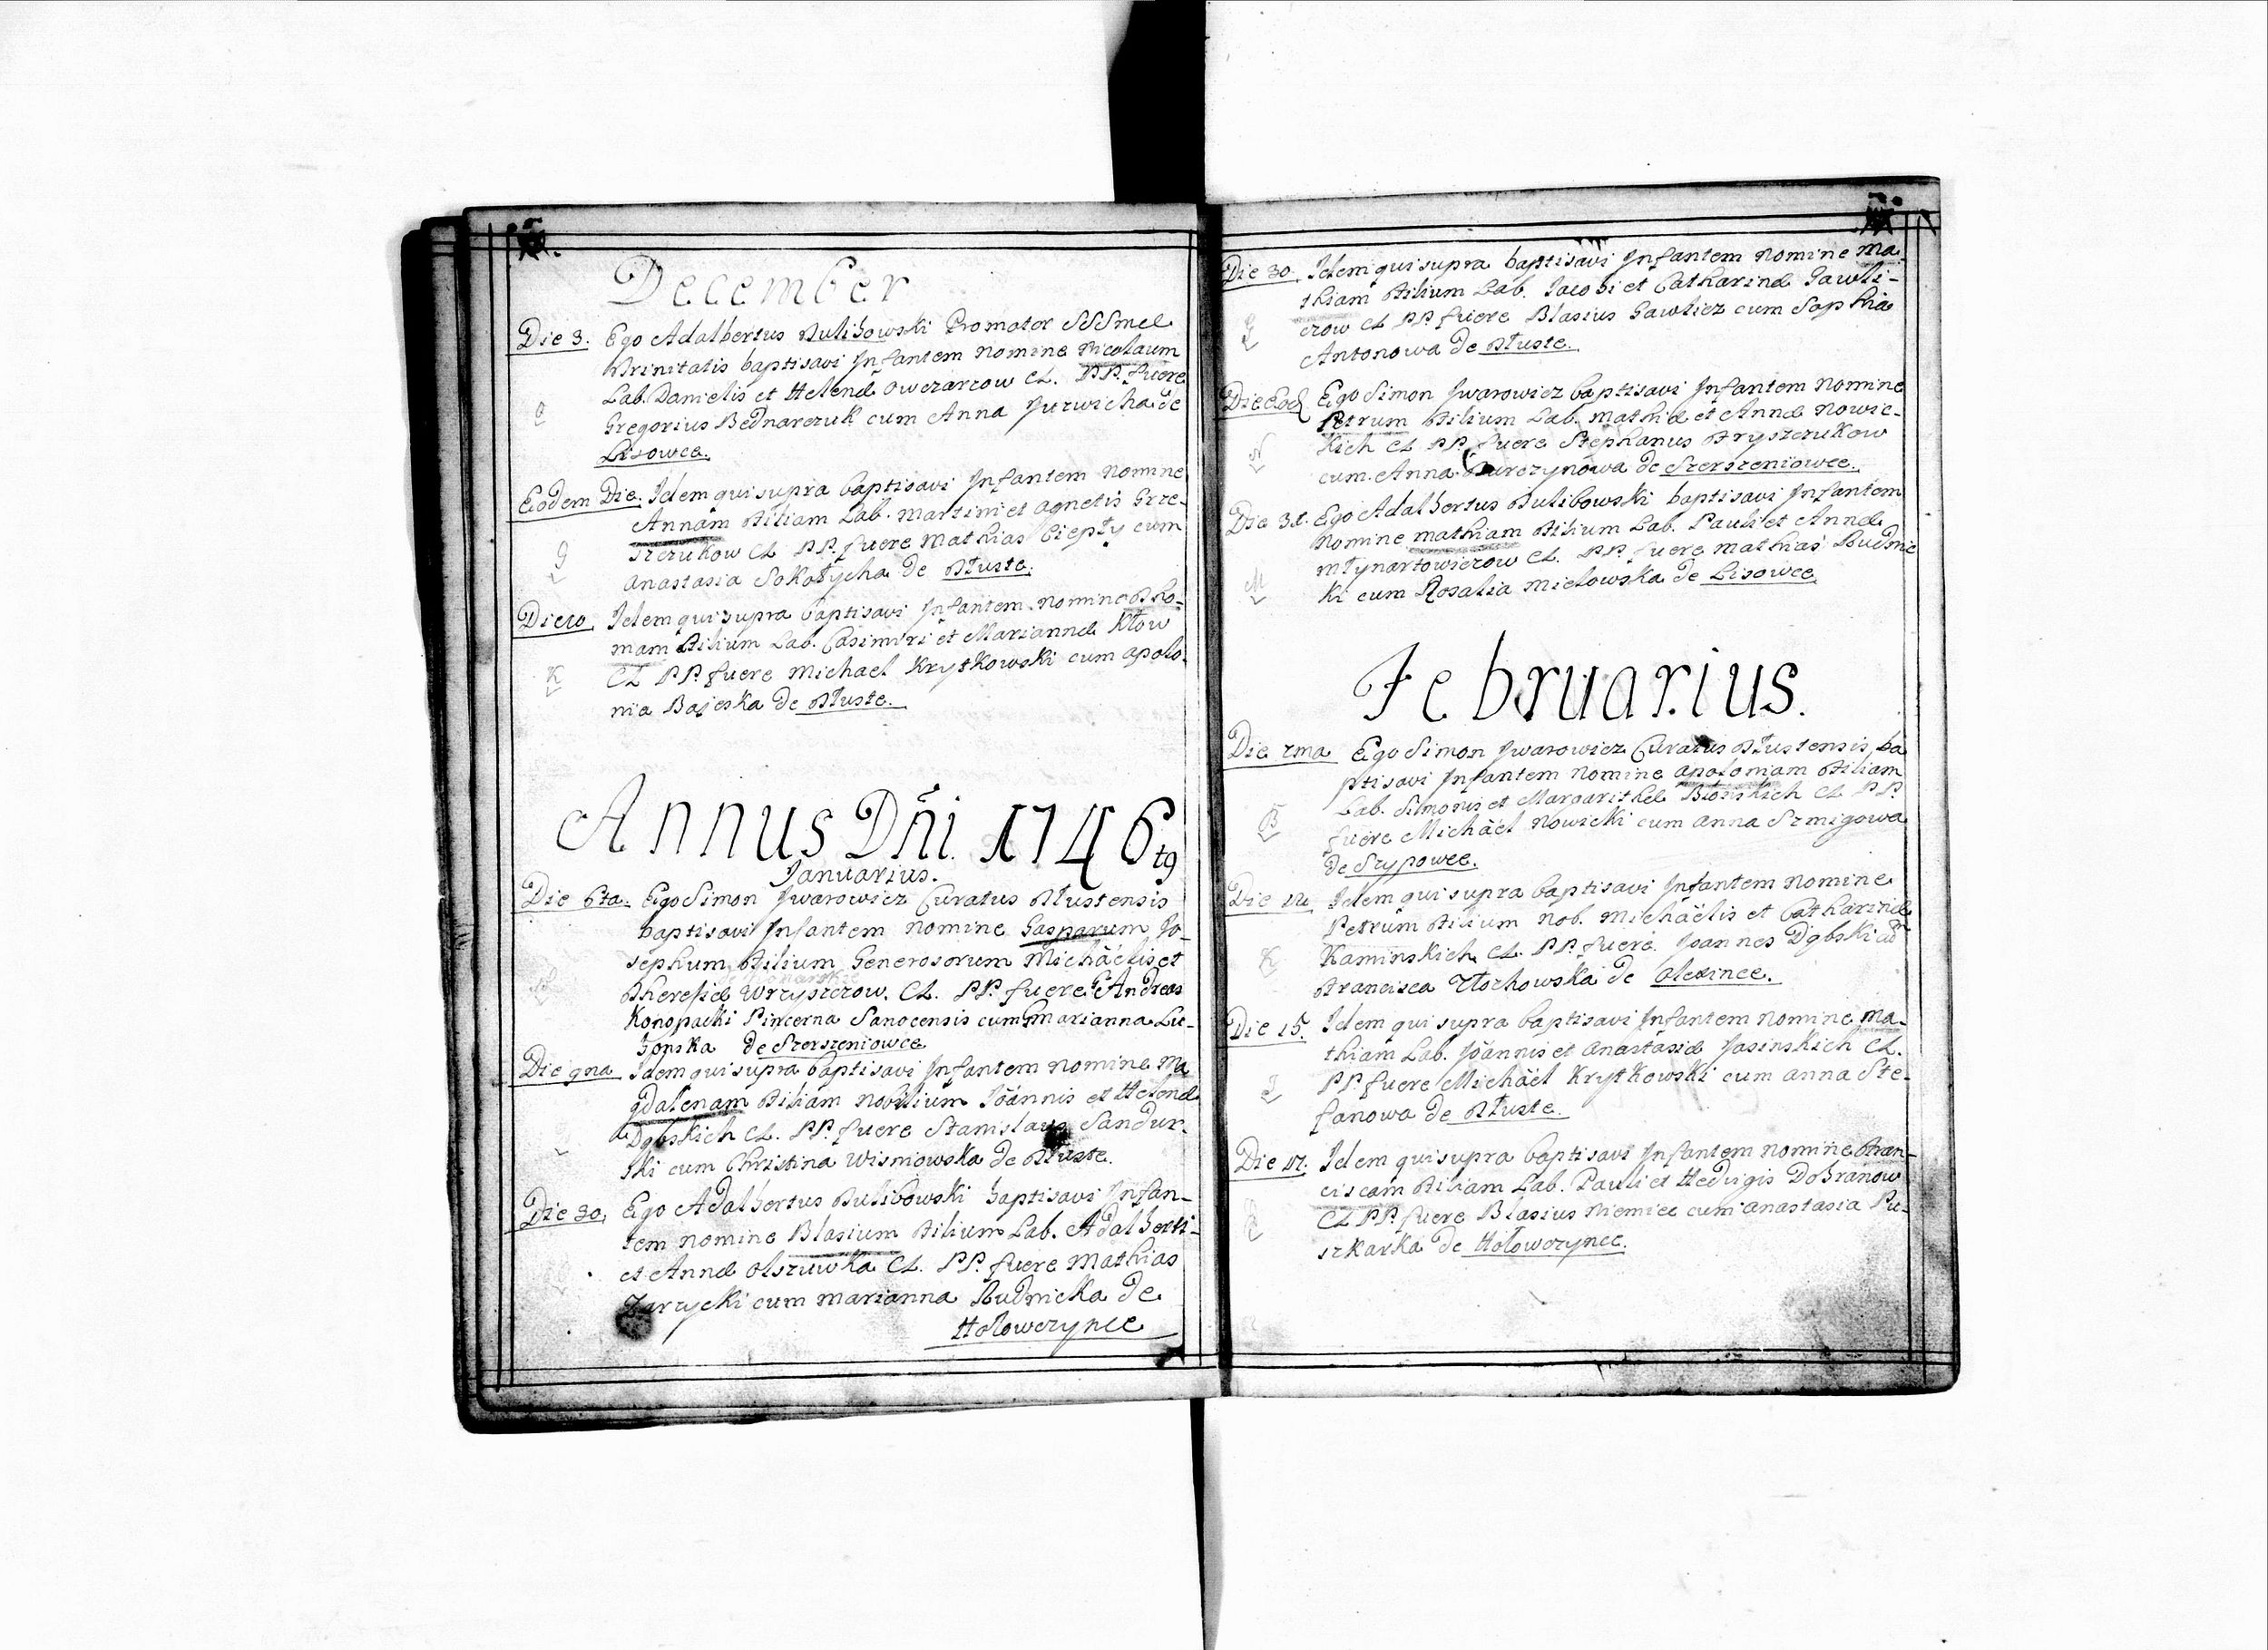 December
Die 3. Ego Adalbertus Tulibowski Promotor SSSmæ
Trinitatis baptisavi Infantem nomine Nicolaum
Lab. Danielis et Helenæ Owczarzow CL. PP. fuere
O
Gregorius Bednarczuk cum Anna Jurwicha de
Lisowce.
Eodem Die. Idem qui supra baptisavi Infantem nomine
Annam Filiam Lab. Martini et Agnetis Grze-
G
szczukow CL PP. fuere Mathias Ciepły cum
Anastasia Sokołycha de Tłuste.
Die 10. Idem qui supra baptisavi Infantem nomine Tho-
mam Filium Lab. Casimiri et Mariannæ Kłow
K
CL PP. fuere Michael Krytkowski cum Apolo-
nia Bajeska de Tłuste.
Annus Dñi. 1746 tg
Januarius.
Die 6ta. Ego Simon Jwarowicz Curatus Tłustensis
baptisavi Infantem nomine Gasparum Jo-
sephum Filium Generosorum Michäelis et
Theresiæ Wrzyszczow. CL. PP. fuere G Andreas
Konopacki Pincerna Sanocensis cum Marianna Lu-
żonska de Szerszeniowce
Die 9na Idem qui supra baptisavi Infantem nomine Ma
gdalenam Filiam Nobilium Jöannis et Helenæ
Dąbskich CL. PP. fuere Stanislaus Sandur-
ski cum Christina Wisniowska de Tłuste.
Die 30. Ego Adalbertus Tulibowski baptisavi Infan-
tem nomine Blasium Filium Lab. Adalberti
et Annæ Olszuwka CL. PP. fuere Mathias
Zarzycki cum Marianna Rudnicka de
Hołowczynce
Die 30. Idem qui supra baptisavi Infantem nomine Ma-
thiam Filium Lab. Jacobi et Catharinæ Gawli-
G
czow CL PP. fuere Blasius Gawlicz cum Sophia
Antonowa de Tłuste.
Die Eod Ego Simon Jwarowicz baptisavi Infantem nomine
Petrum Filium Lab. Mathiæ et Annæ Nowic-
N
kich CL PP. fuere Stephanus Fryszczukow
cum Anna de Szerszeniowce.
Die 31. Ego Adalbertus Tulibowski baptisavi Infantem
nomine Mathiam Filium Lab. Pauli et Annæ
Młynartowiczow CL. PP. fuere Mathias Rudnic
M
ki cum Rosalia Michowska de Lisowce
Februarius.
Die 1ma Ego Simon Jwarowicz Curatus Tłustensis ba
ptisavi Infantem nomine Apoloniam Filiam
Lab. Simonis et Margarithæ Błonskich CL PP.
B
fuere Michäel Nowicki cum Anna Szmigowa
de Szypowce.
Die 12. Idem qui supra baptisavi Infantem nomine
Petrum Filium Nob. Michäelis et Catharinæ
K
Kaminskich CL. PP. fuere Joannes Dąbski cū
Francisca Złochowska de Olexince.
Die 15. Idem qui supra baptisavi Infantem nomine Ma-
thiam Lab. Jöannis et Anastasiæ Jasinskich CL.
J
PP. fuere Michäel Krytkowski cum Anna Ste-
fanowa de Tłuste.
Die 17. Idem qui supra baptisavi Infantem nomine Fran-
ciscam Filiam Lab. Pauli et Hedvigis Dobranow
CL PP. fuere Blasius Niemiec cum Anastasia Pu-
szkarka de Hołowczynce.